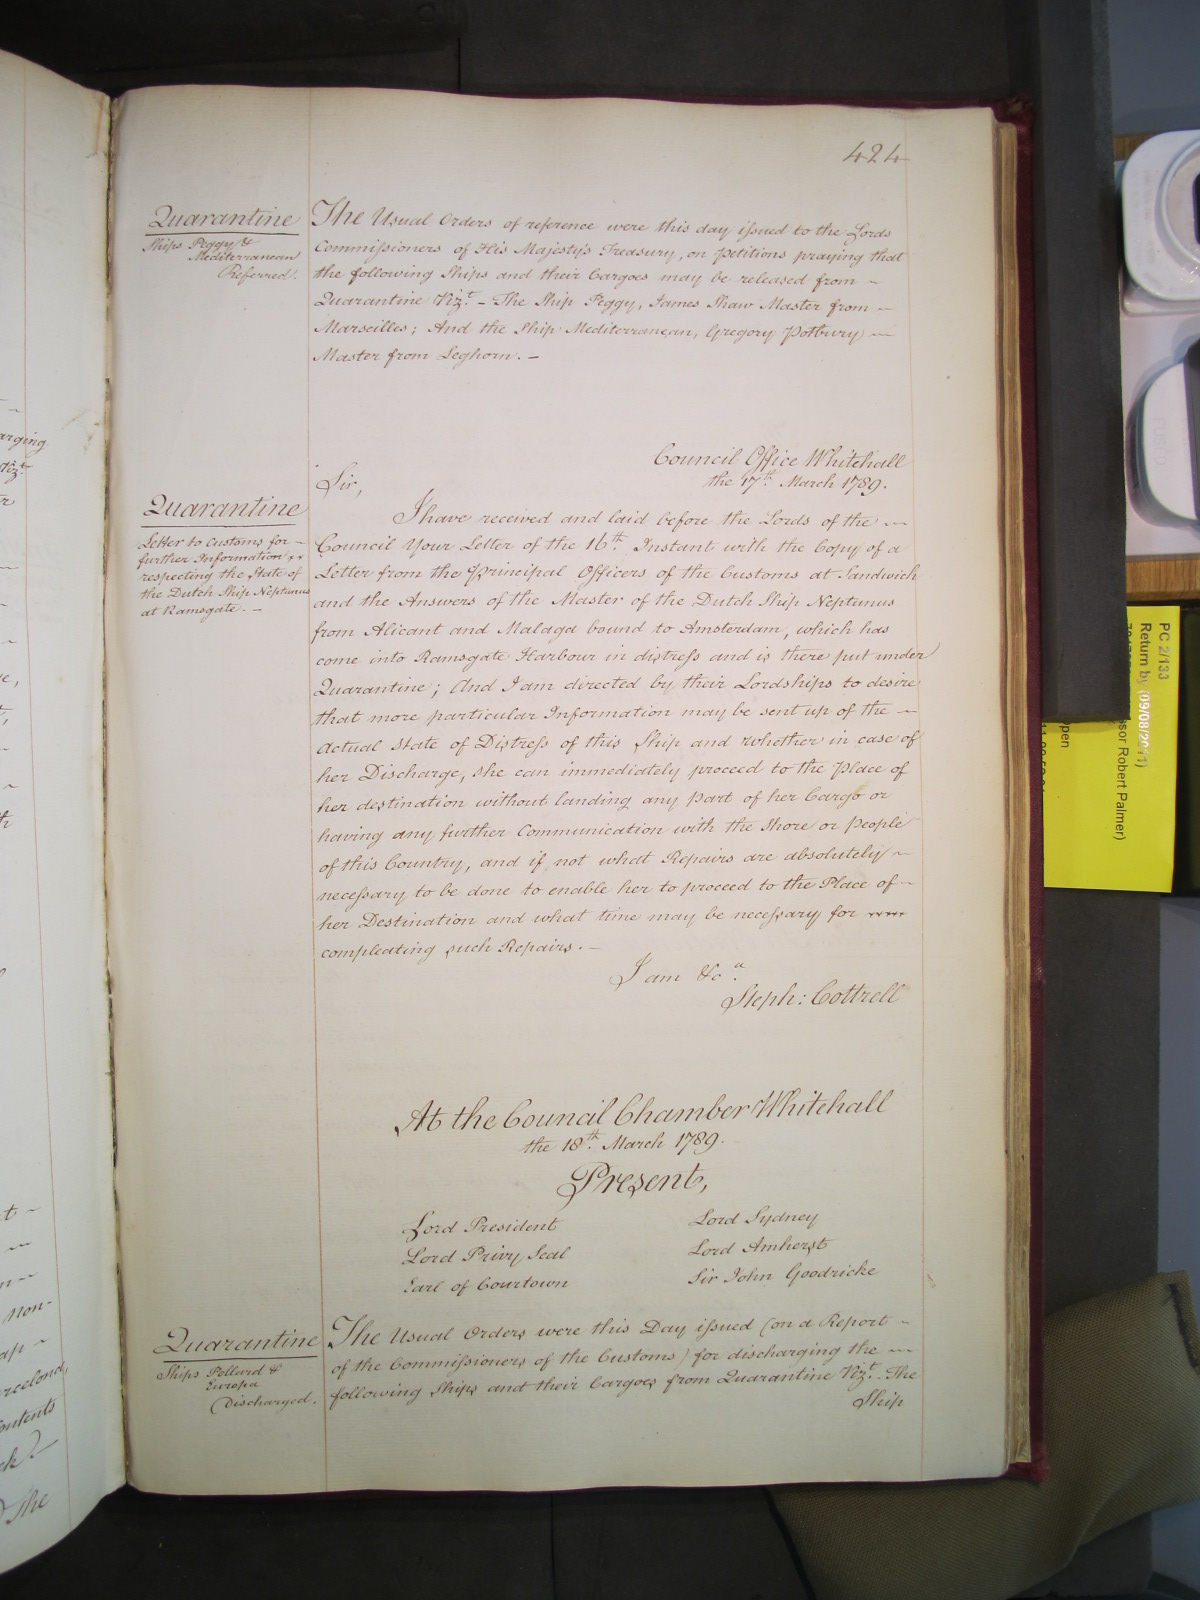 424
Quarantine
Ships Peggy &
Mediterranean
Referred.
The Usual Orders of reference were this day issued to the Lords
Commissioners of His Majesty's Treasury, on petitions praying that
the following Ships and their Cargoes may be released from ~
Quarantine Vizt. - The Ship Peggy, James Shaw Master from ~
Marseilles; And the Ship Mediterranean, Gregory Potbury ~
Master from Leghorn. -
Council Office Whitehall
the 17th. March 1789.
Sir,
Quarantine
Letter to Customs for -
further Information
respecting the State of
the Dutch Ship Neptunus
at Ramsgate. -
I have received and laid before the Lords of the ~
Council Your Letter of the 16th. Instant with the Copy of a
Letter from the Principal Officers of the Customs at Sandwich
and the Answers of the Master of the Dutch Ship Neptunus
from Alicant and Malaga bound to Amsterdam, which has
come into Ramsgate Harbour in distress and is there put under
Quarantine; And I am directed by their Lordships to desire
that more particular Information may be sent up of the ~
actual State of Distress of this Ship and whether in case of
her Discharge, she can immediately proceed to the Place of
her destination without landing any part of her Cargo or
having any further Communication with the Shore or People
of this Country, and if not what Repairs are absolutely ~
necessary to be done to enable her to proceed to the Place of ~
her Destination and what time may be necessary for
compleating such Repairs. -
I am &ca.
Steph: Cottrell
At the Council Chamber Whitehall
the 18th. March 1789.
Present,
Lord President
Lord Privy Seal
Earl of Courtown
Lord Sydney
Lord Amherst
Sir John Goodricke
Quarantine
Ships Pollard &
Europa
Discharged.
The Usual Orders were this Day issued (on a Report ~
of the Commissioners of the Customs) for discharging the ~
following Ships and their Cargoes from Quarantine Vizt. The
Ship
PC 2/133
Return by (09/08/2011)
ssor Robert Palmer)